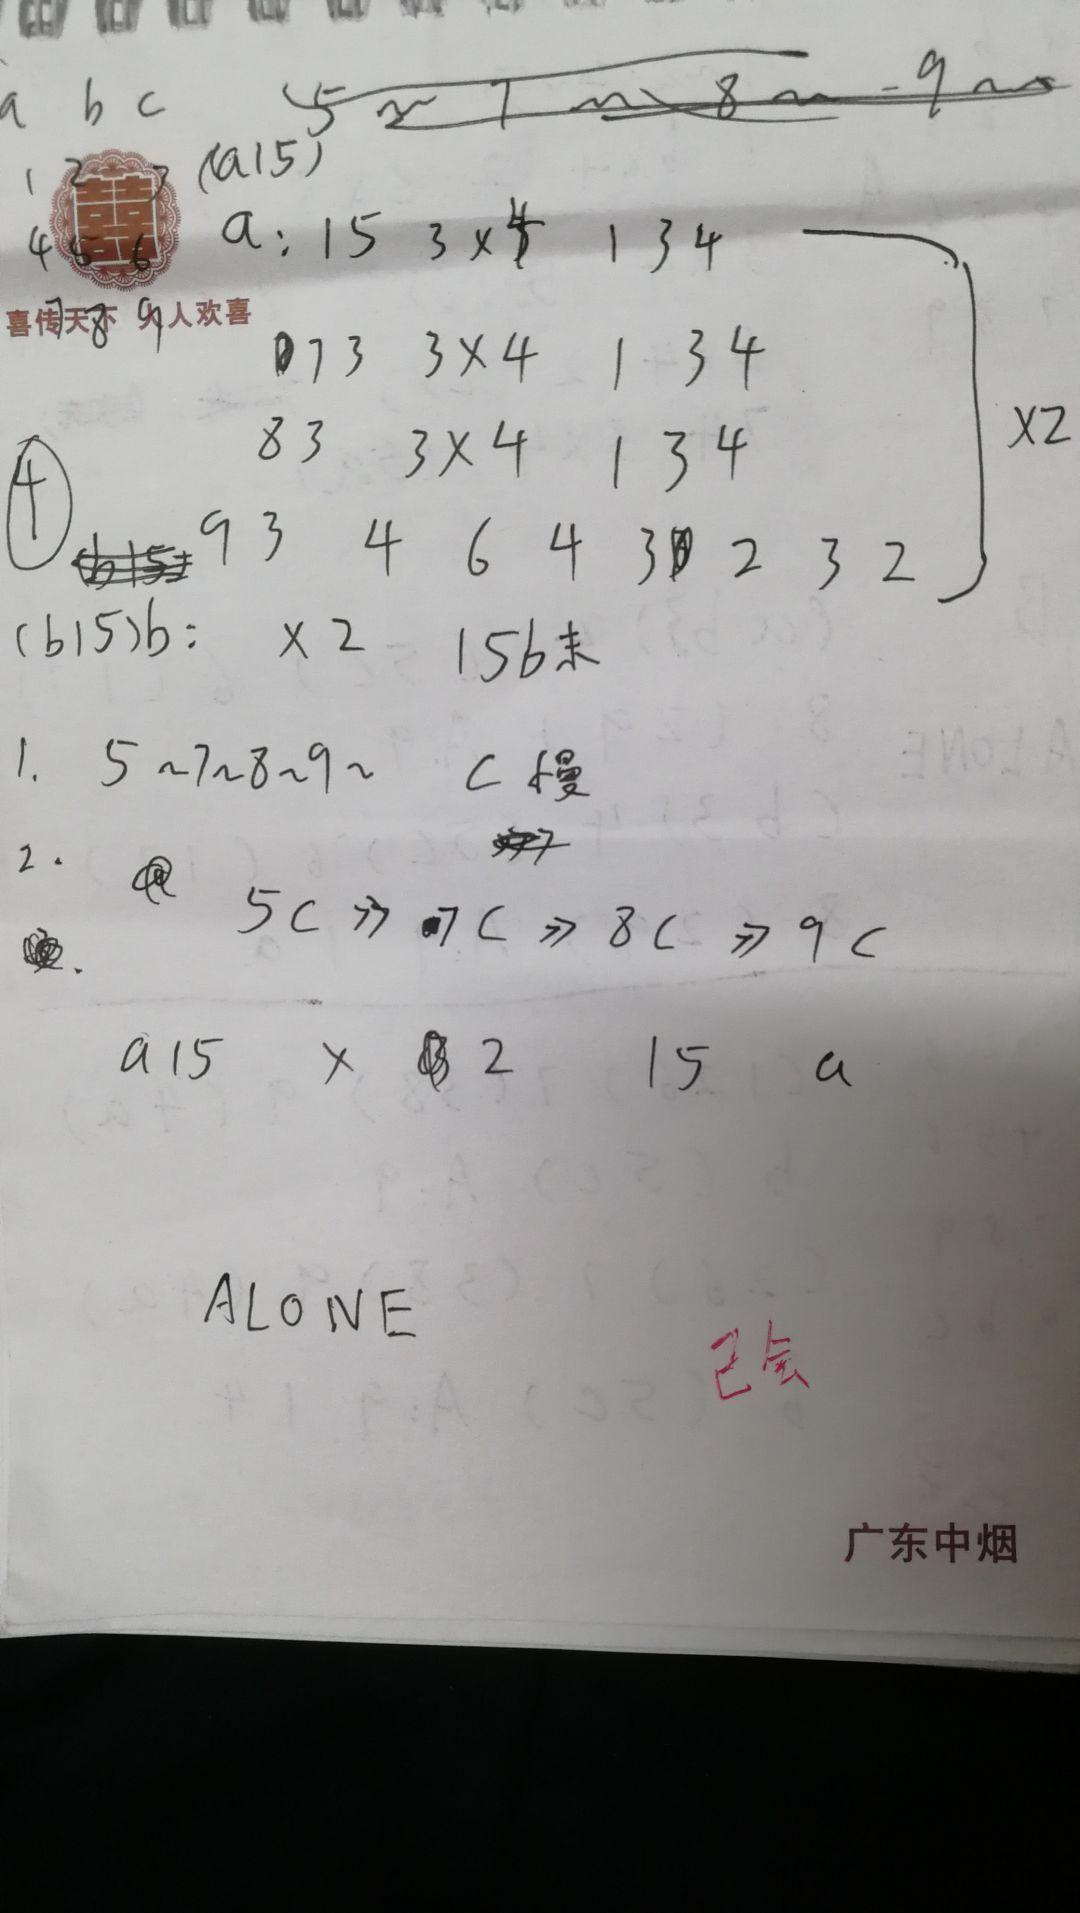 a b c 5 ~ 7 ~ 8 ~ 9 ~
1 2 3 (a15)
4 5 6 a: 15 3×4 1 3 4
7 8 9
喜传天下 人人欢喜
73 3×4 1 3 4
×2
83 3×4 1 3 4
4
93 4 6 4 3 2 3 2
(b15)
(b15)b: ×2 15b末
1. 5~7~8~9~ C慢
2. 5C » 7C » 8C » 9C
a15 × 2 15 a
ALONE
已会
广东中烟